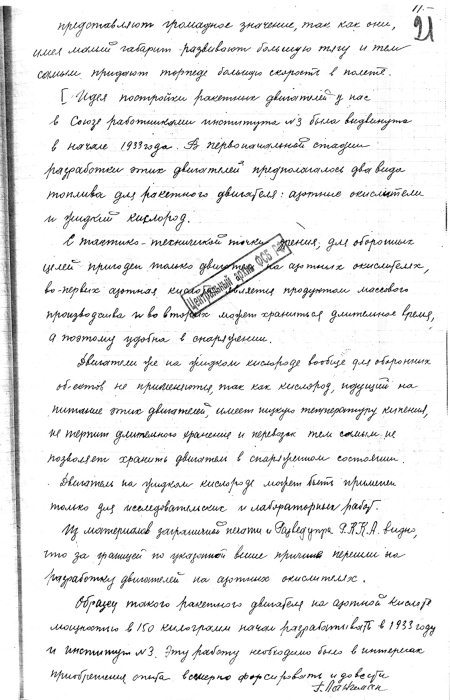 11.-
21
представляют громадное значение, так как они,
имея малый габарит развивают большую тягу и тем
самым придают торпеде большую скорость в полете.
[ Идея постройки ракетных двигателей у нас
в Союзе работниками института №3 была выдвинута
в начале 1933 года. В первоначальной стадии
разработки этих двигателей предполагалось два вида
топлива для ракетного двигателя: азотные окислители
и жидкий кислород.
С тактико-технической точки зрения, для оборонных
целей пригоден только двигатель на азотных окислителях,
во-первых азотная кислота является продуктом массового
производства и во вторых может храниться длительное время,
а поэтому удобна в снаряжении.
Центральный архив ФСБ РФ
Двигатели же на жидком кислороде вообще для оборонных
об-ектов не применяются, так как кислород, идущий на
питание этих двигателей, имеет низкую температуру кипения,
не терпит длительного хранения и перевозок тем самым не
позволяет хранить двигатели в снаряженном состоянии.
Двигатели на жидком кислороде может быть применен
только для исследовательских и лабораторных работ.
Из материалов заграничной печати и Разведупра Р.К.К.А. видно,
что за границей по указанной выше причине перешли на
разработку двигателей на азотных окислителях.
Образец такого ракетного двигателя на азотной кислоте
мощностью в 150 килограмм начал разрабатывать в 1933 году
и институт №3. Эту работу необходимо было в интересах
приобретения опыта всемерно форсировать и довести